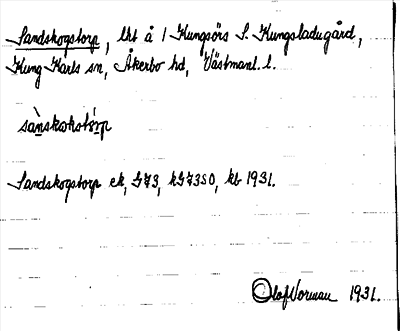 Sandskogstorp, lht å 1 Kungsörs S. Kungsladugård,
Kung Karls sn, Åkerbo hd, Västmanl. l.
sànskωkstór̲p
Sandskogstorp ek, G73, kG73SO, kb 1931.
Olof Norman 1931.